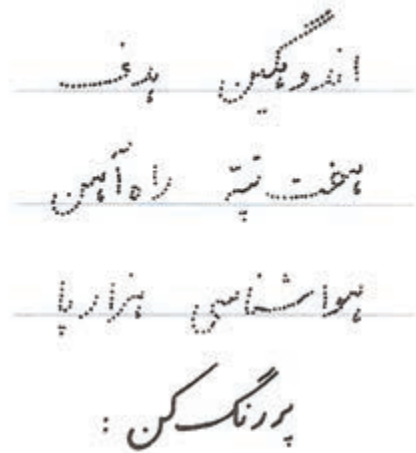 اندوهگین هدف
هفت تپّه راه‌آهن
هواشناسی هزارپا
پررنگ کن :